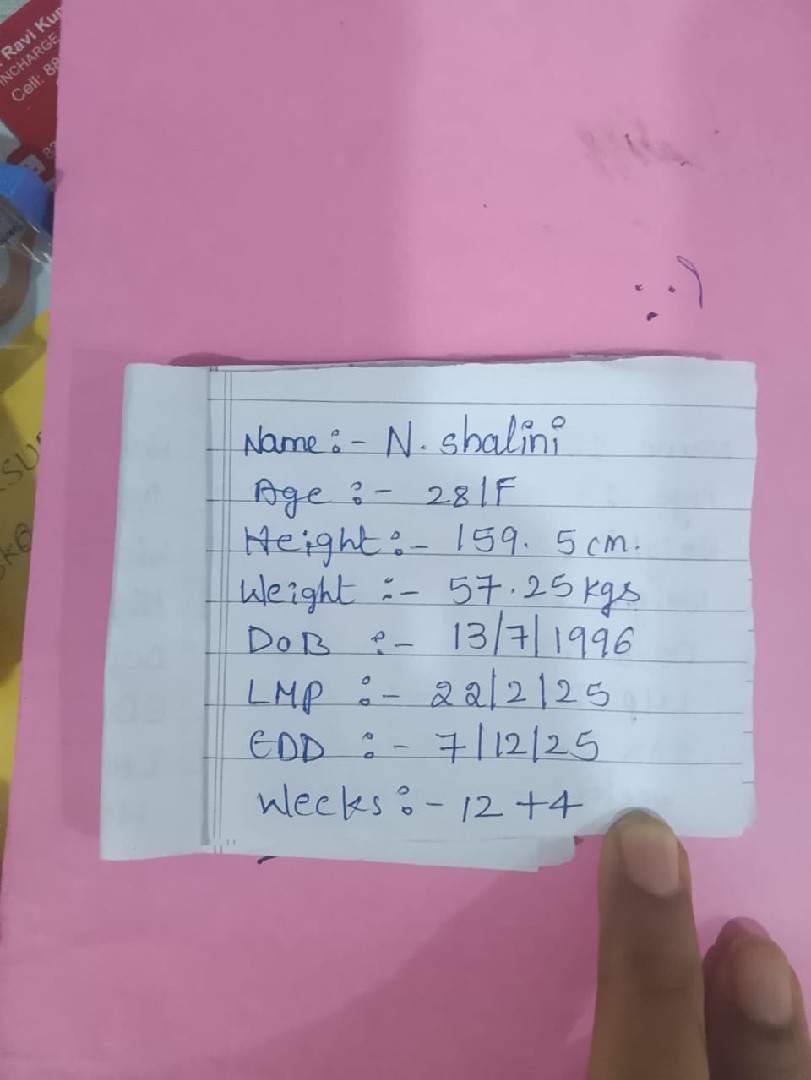 Ravi Kur
INCHARGE
Cell: 88
Name :- N. shalini
Age :- 28/F
Height :- 159. 5 cm.
Weight :- 57.25 kgs
DoB :- 13/7/1996
LMP :- 22/2/25
EDD :- 7/12/25
Weeks :- 12 +4